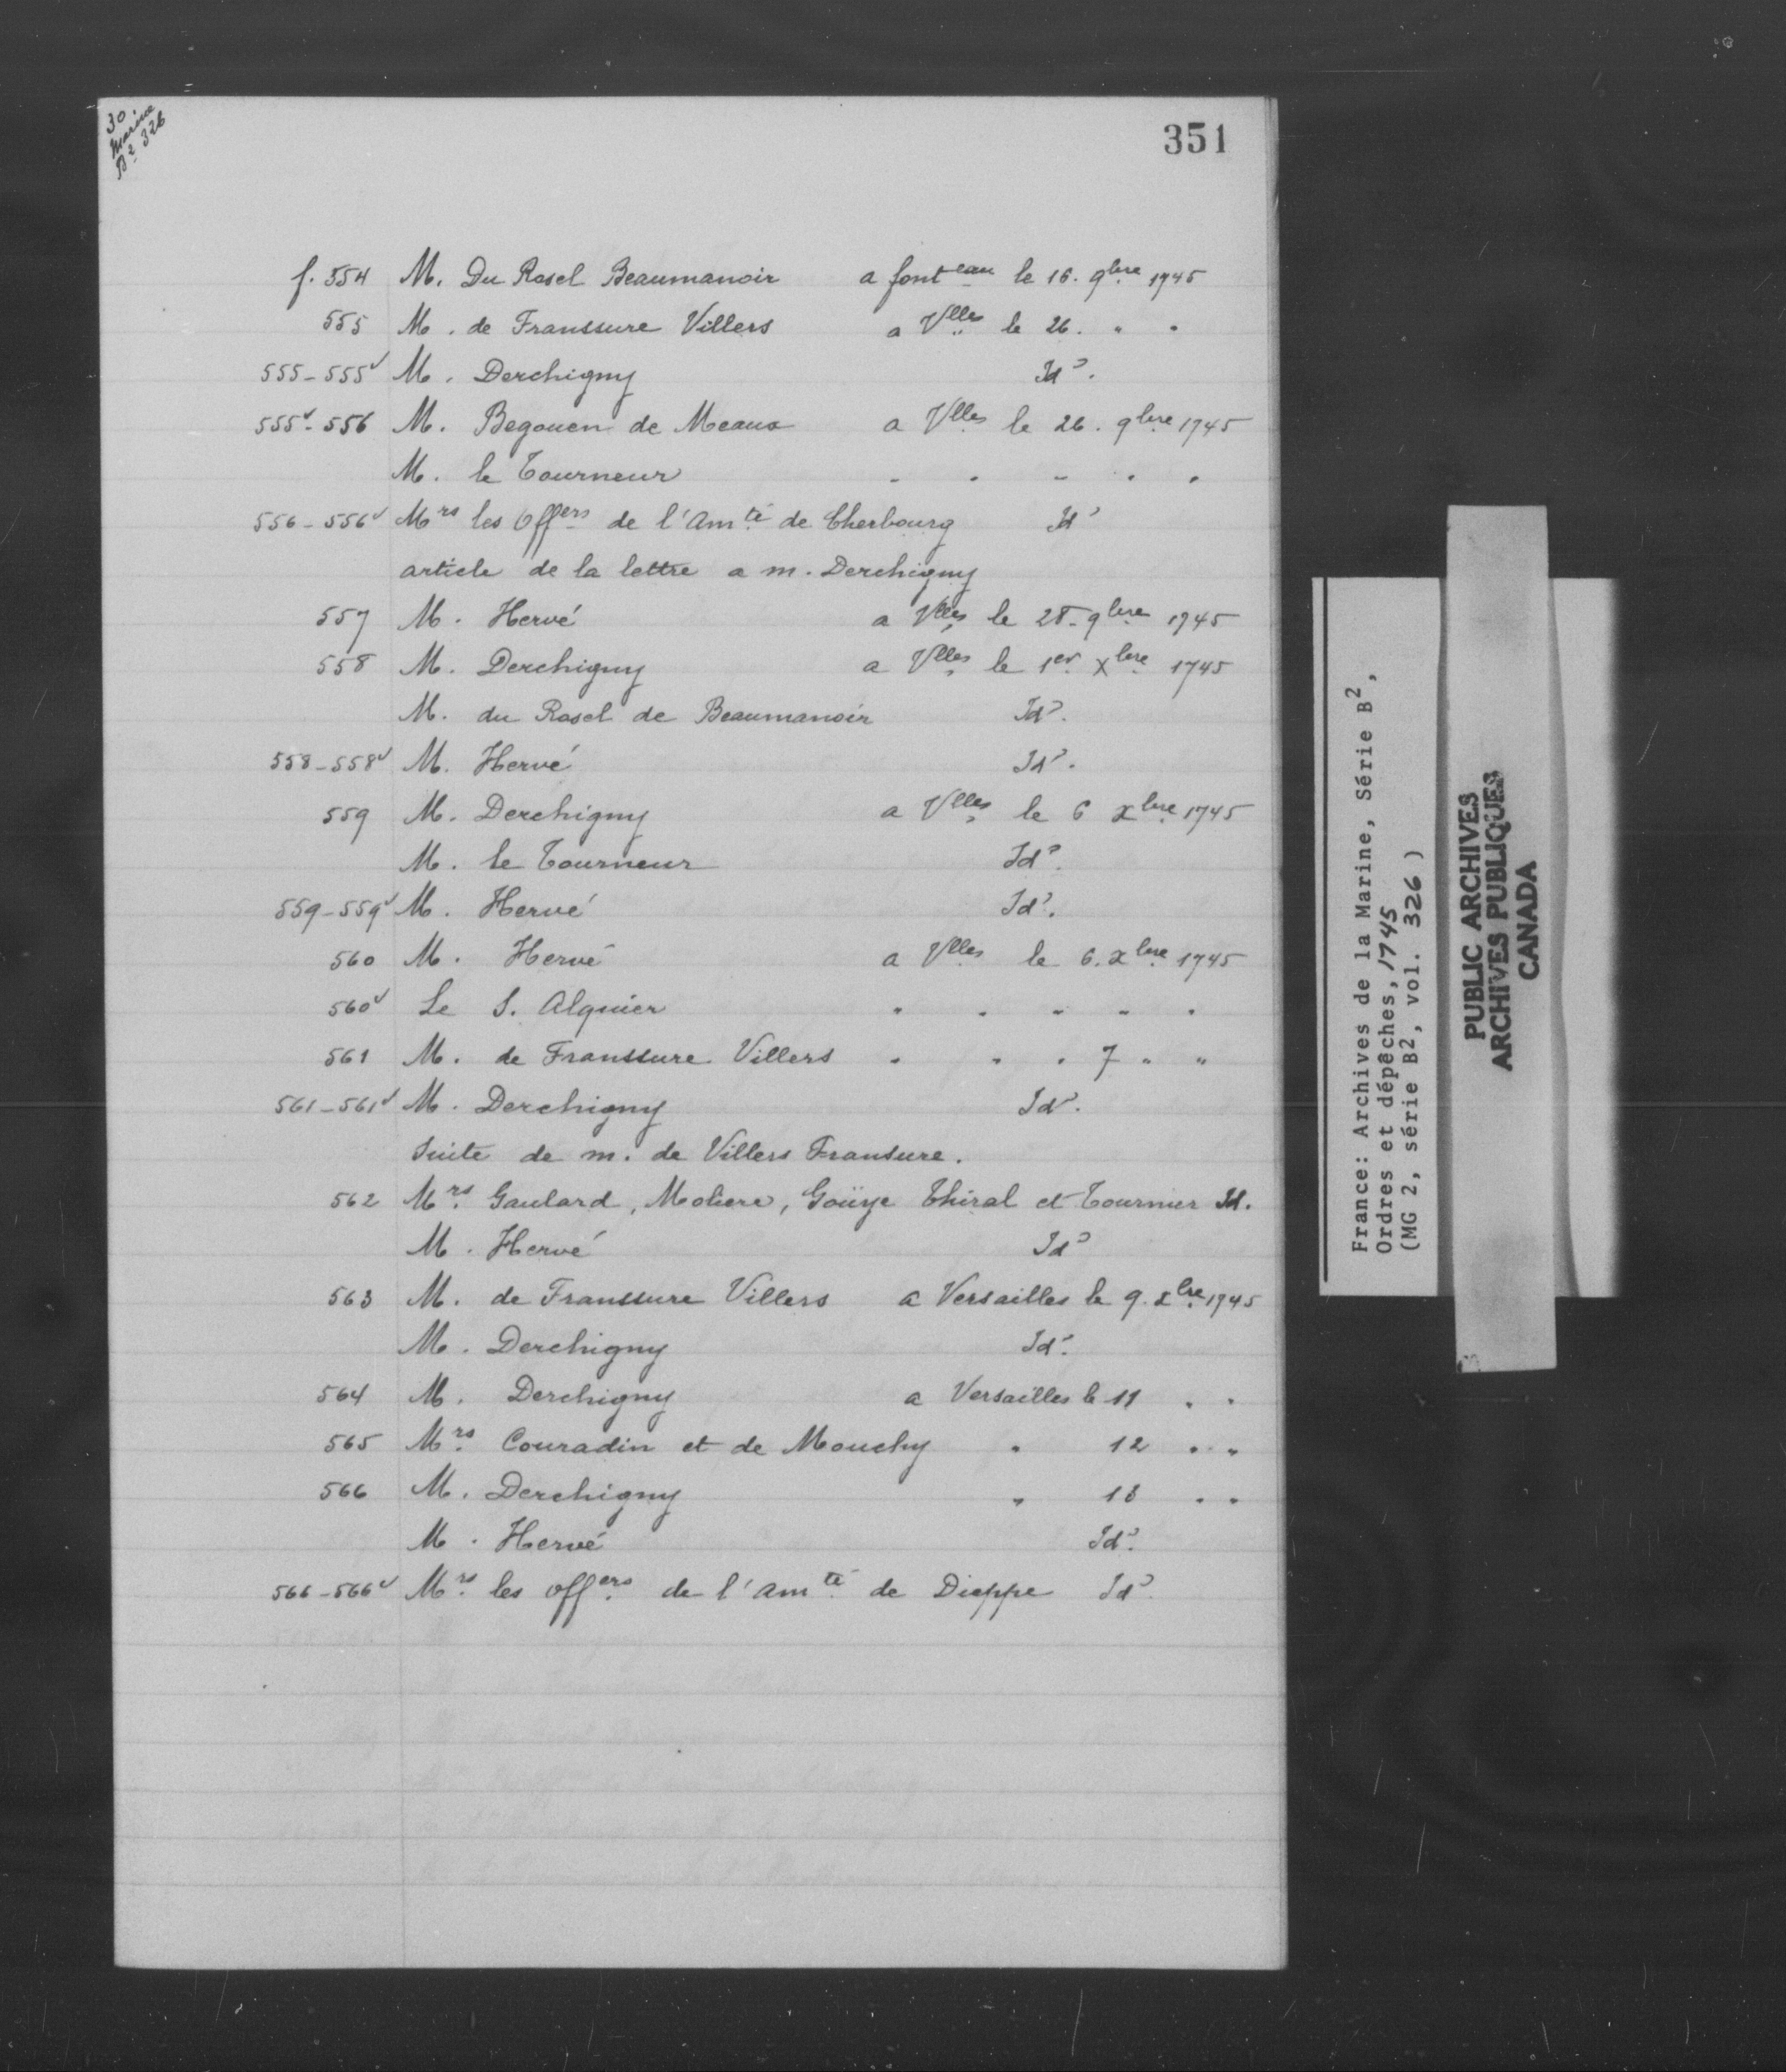 30
Marine
B² 326
351
f. 554 M. Du Rosel Beaumanoir a font eau le 16. 9bre 1745
555 M. de Franssure Villers a Vlles le 26. " "
555-555v M. Derchigny Id°.
555v-556 M. Begouen de Meaux a Vlles le 26. 9bre 1745
M. le Tourneur " " " " "
556-556v Mrs les Offers de l'Amté de Cherbourg Id°
article de la lettre a m. Derchigny
557 M. Hervé a Vlles le 28. 9bre 1745
558 M. Derchigny a Vlles le 1er Xbre 1745
M. du Rosel de Beaumanoir Id°.
558-558v M. Hervé Id°.
559 M. Derchigny a Vlles le 6 Xbre 1745
M. le Tourneur Id°.
559-559v M. Hervé Id°.
560 M. Hervé a Vlles le 6. Xbre 1745
560v Le S. Alquier " " " " "
561 M. de Franssure Villers " " " 7 " "
561-561v M. Derchigny Id°.
Suite de m. de Villers Fransure.
562 Mrs Gaulard, Moliere, Goüye Thiral et Tournier Id.
M. Hervé Id°
563 M. de Franssure Villers a Versailles le 9. Xbre 1745
M. Derchigny Id°.
564 M. Derchigny a Versailles le 11 " "
565 Mrs Couradin et de Mouchy " 12 " "
566 M. Derchigny " 13 " "
M. Hervé Id°.
566-566v Mrs les offers de l'amté de Dieppe Id°
France: Archives de la Marine, Série B²,
Ordres et dépêches, 1745
(MG 2, série B2, vol. 326)
PUBLIC ARCHIVES
ARCHIVES PUBLIQUES
CANADA